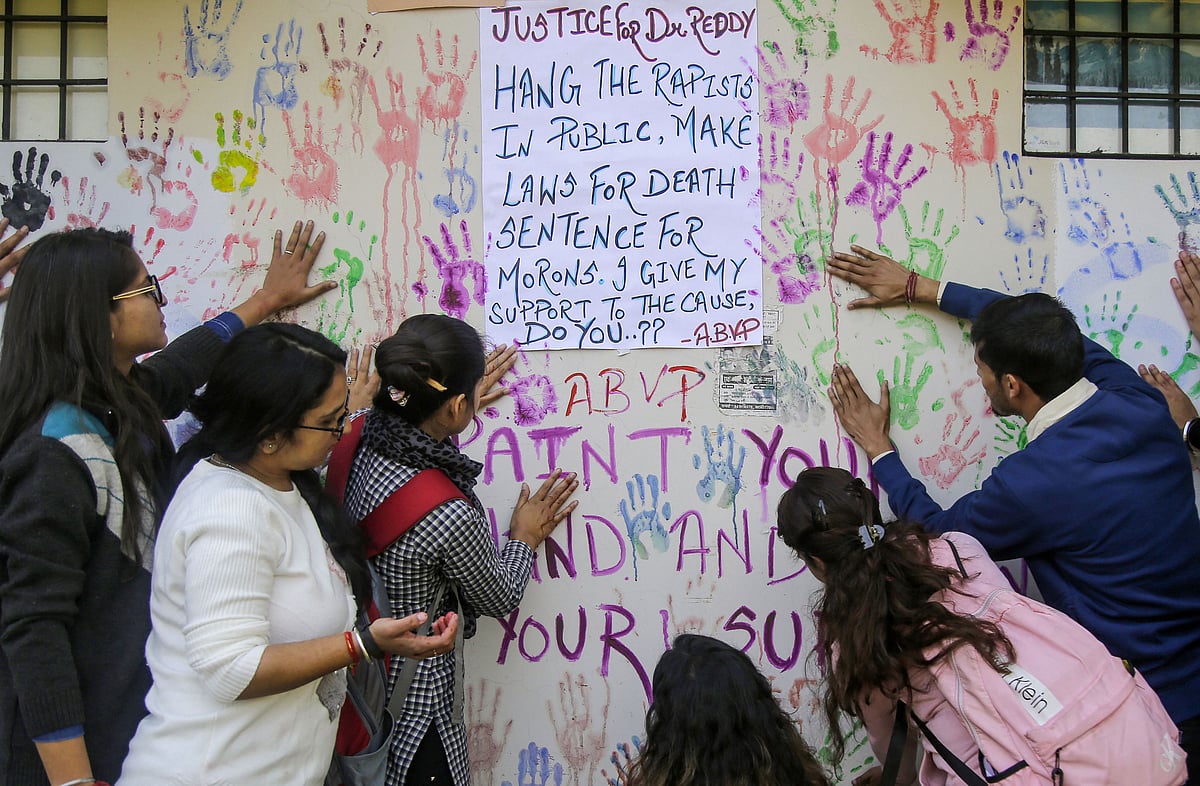 JUSTICE FOR DR REDDY
HANG THE RAPISTS
IN PUBLIC, MAKE
LAWS FOR DEATH
SENTENCE FOR
MORONS. I GIVE MY
SUPPORT TO THE CAUSE,
DO YOU..??
-ABVP
ABVP
PAINT YOU
HAND AND
YOUR SU
Klein